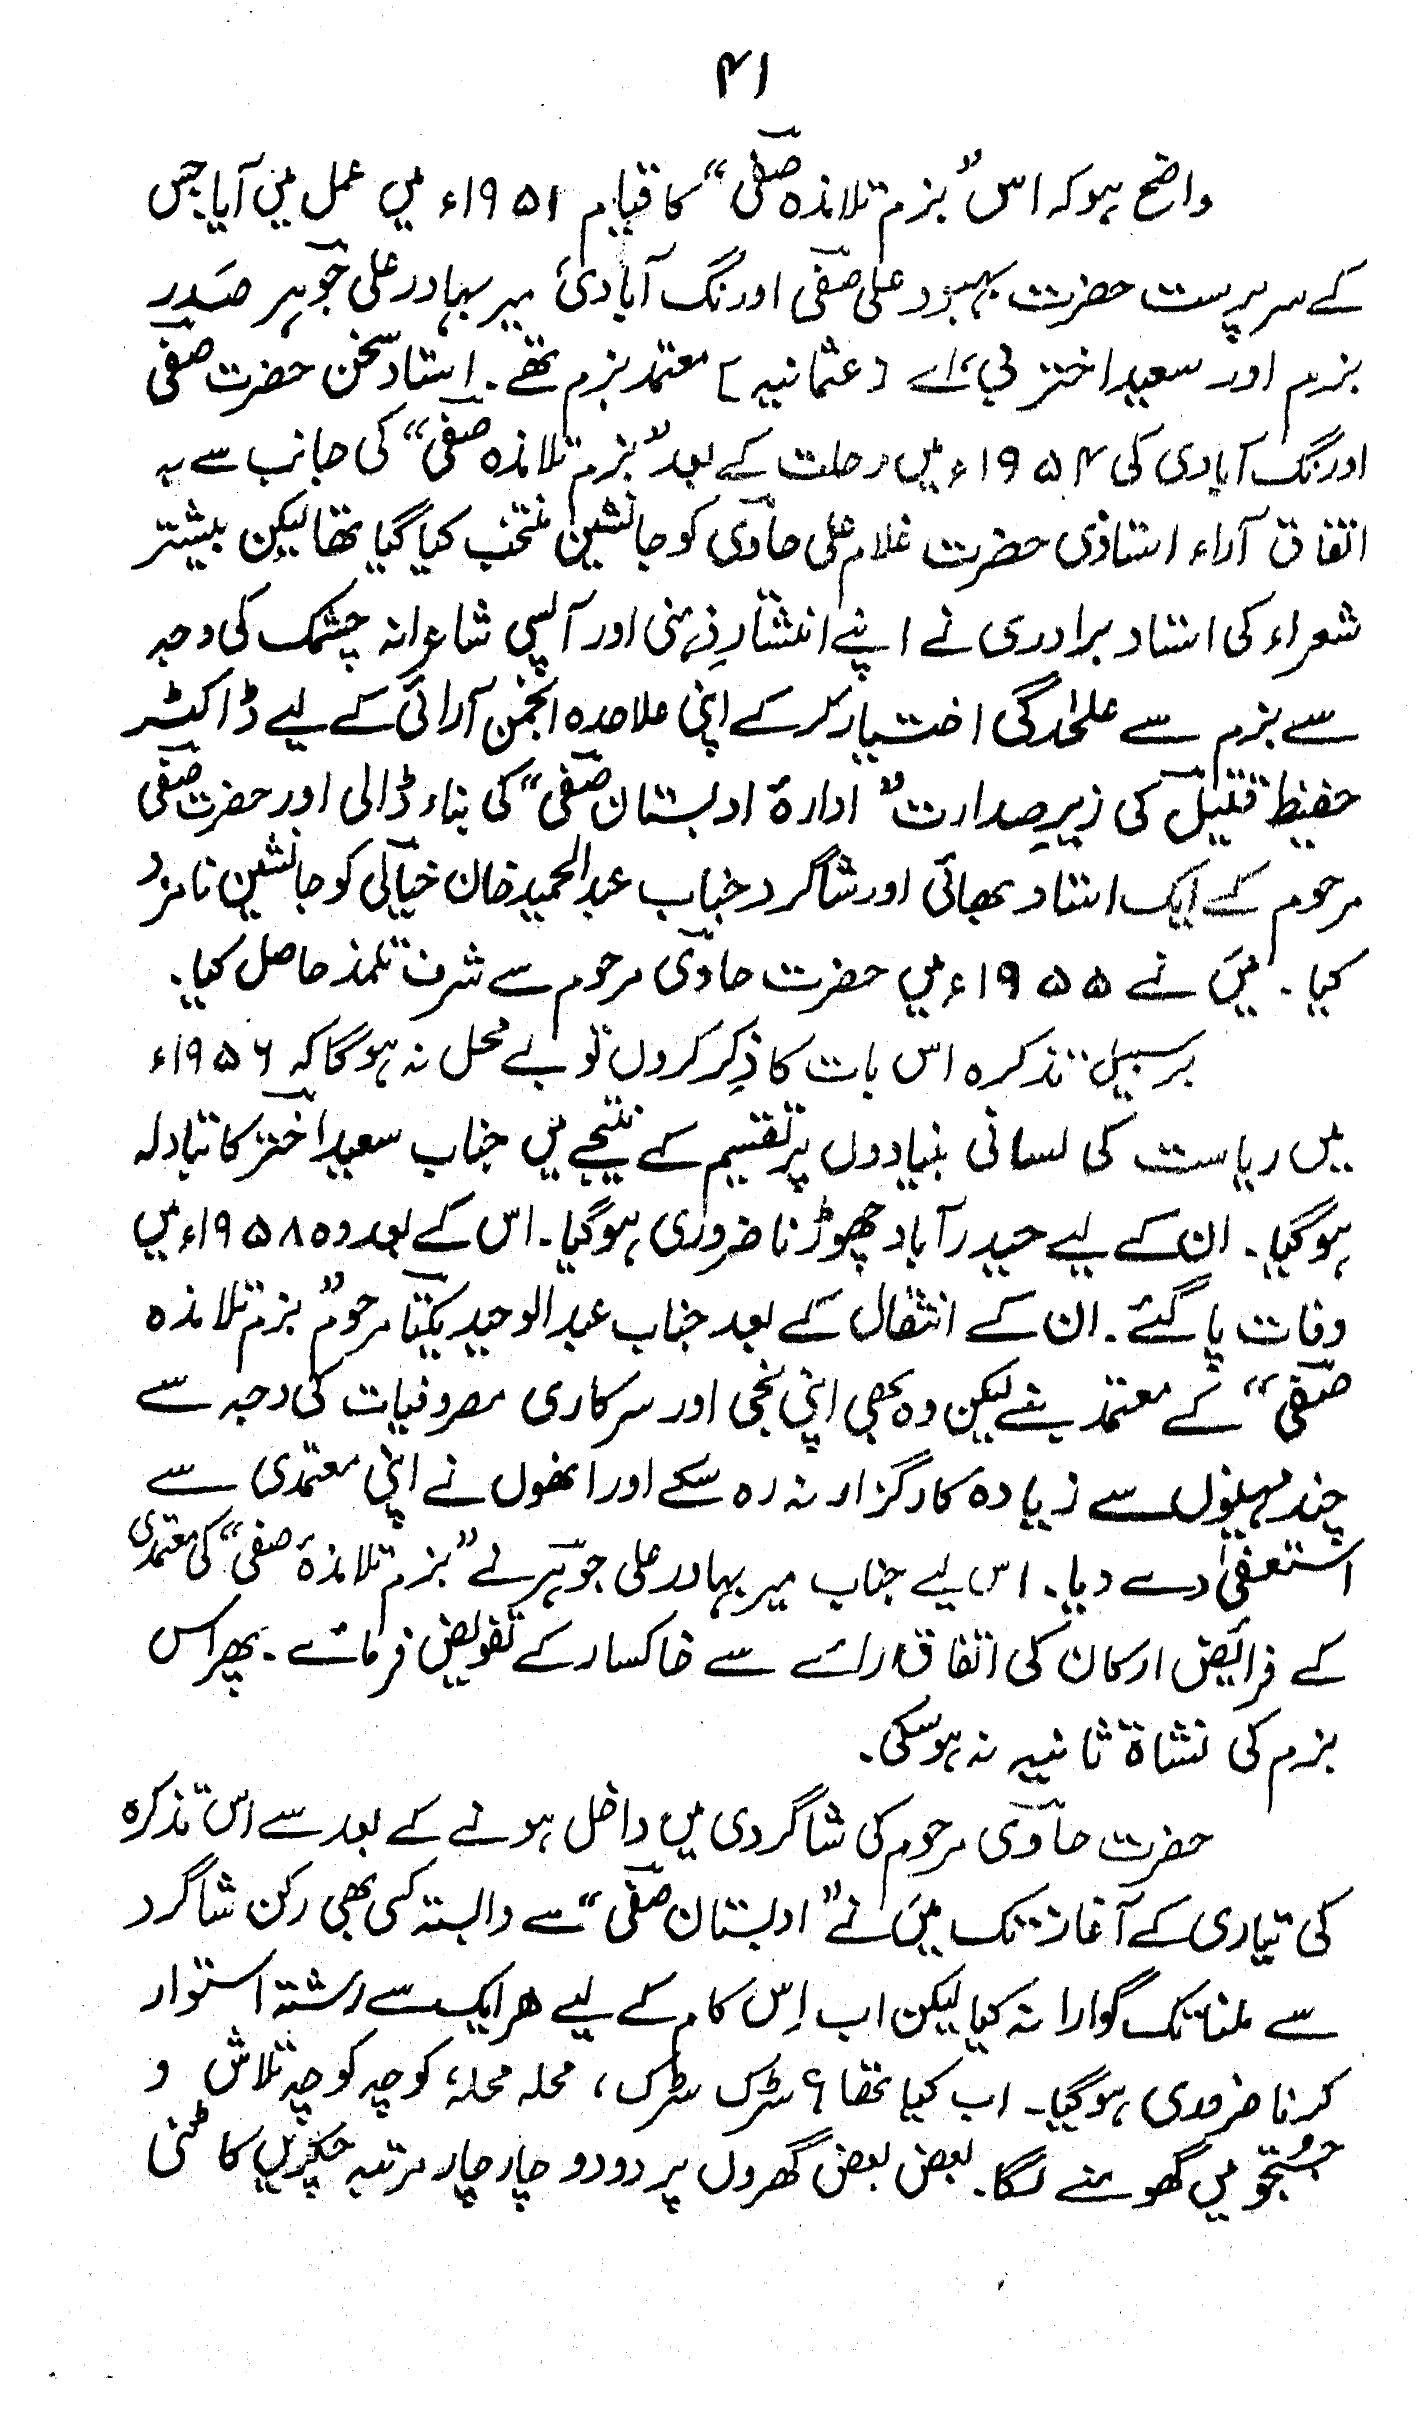 ۴۱
واضح ہو کہ اس ”بزم تلامذہ صفیؔ“ کا قیام ۱۹۵۱ء میں عمل میں آیا جس
کے سرپرست حضرت بہبود علی صفیؔ اورنگ آبادی، میر بہادر علی جوہرؔ صَدر
بزم اور سعید اختر بی، اے (عثمانیہ) معتمد بزم تھے۔ استاد سخن حضرت صفیؔ
اورنگ آبادی کی ۱۹۵۴ء میں رحلت کے بعد ”بزم تلامذہ صفیؔ“ کی جانب سے بہ
اتفاق آراء استاذی حضرت غلام علی حاویؔ کو جانشین منتخب کیا گیا تھا لیکن بیشتر
شعراء کی استاد برادری نے اپنے انتشارِ ذہنی اور آپسی شاعرانہ چشمک کی وجہ
سے بزم سے علحٰدگی اختیار کر کے اپنی علاحدہ انجمن آرائی کے لیے ڈاکٹر
حفیظ قتیلؔ کی زیرِ صدارت ”ادارۂ ادبستان صفیؔ“ کی بناء ڈالی اور حضرت صفیؔ
مرحوم کے ایک استاد بھائی اور شاگرد جناب عبدالحمید خان خیالیؔ کو جانشین نامزد
کیا۔ میں نے ۱۹۵۵ء میں حضرت حاویؔ مرحوم سے شرف تلمذ حاصل کیا۔
برسبیل تذکرہ اس بات کا ذِکر کروں تو بے محل نہ ہوگا کہ ۱۹۵۶ء
میں ریاست کی لسانی بنیادوں پر تقسیم کے نتیجے میں جناب سعید اخترؔ کا تبادلہ
ہوگیا۔ ان کے لیے حیدرآباد چھوڑنا ضروری ہوگیا۔ اس کے بعد وہ ۱۹۵۸ء میں
وفات پا گئے۔ ان کے انتقال کے بعد جناب عبدالوحید یکتاؔ مرحوم ”بزم تلامذہ
صفیؔ“ کے معتمد بنے لیکن وہ بھی اپنی نجی اور سرکاری مصروفیات کی وجہ سے
چند مہینوں سے زیادہ کارگزار نہ رہ سکے اور انھوں نے اپنی معتمدی سے
استعفیٰ دے دیا۔ اس لیے جناب میر بہادر علی جوہرؔ نے ”بزم تلامذۂ صفی“ کی معتمدی
کے فرائض ارکان کی اتفاق رائے سے خاکسار کے تفویض فرمائے۔ پھر اس
بزم کی نشاۃ ثانیہ نہ ہوسکی۔
حضرت حاویؔ مرحوم کی شاگردی میں داخل ہونے کے بعد سے اس تذکرہ
کی تیاری کے آغاز تک میں نے ”ادبستان صفیؔ“ سے وابستہ کسی بھی رکن شاگرد
سے ملنا تک گوارا نہ کیا لیکن اب اِس کام کے لیے ہر ایک سے رشتہ استوار
کرنا ضروری ہوگیا۔ اب کیا تھا؟ سڑک سڑک، محلہ محلہ، کوچہ کوچہ تلاش و
جستجو میں گھومنے لگا۔ بعض بعض گھروں پر دو دو چار چار مرتبہ چکریں کاٹنی